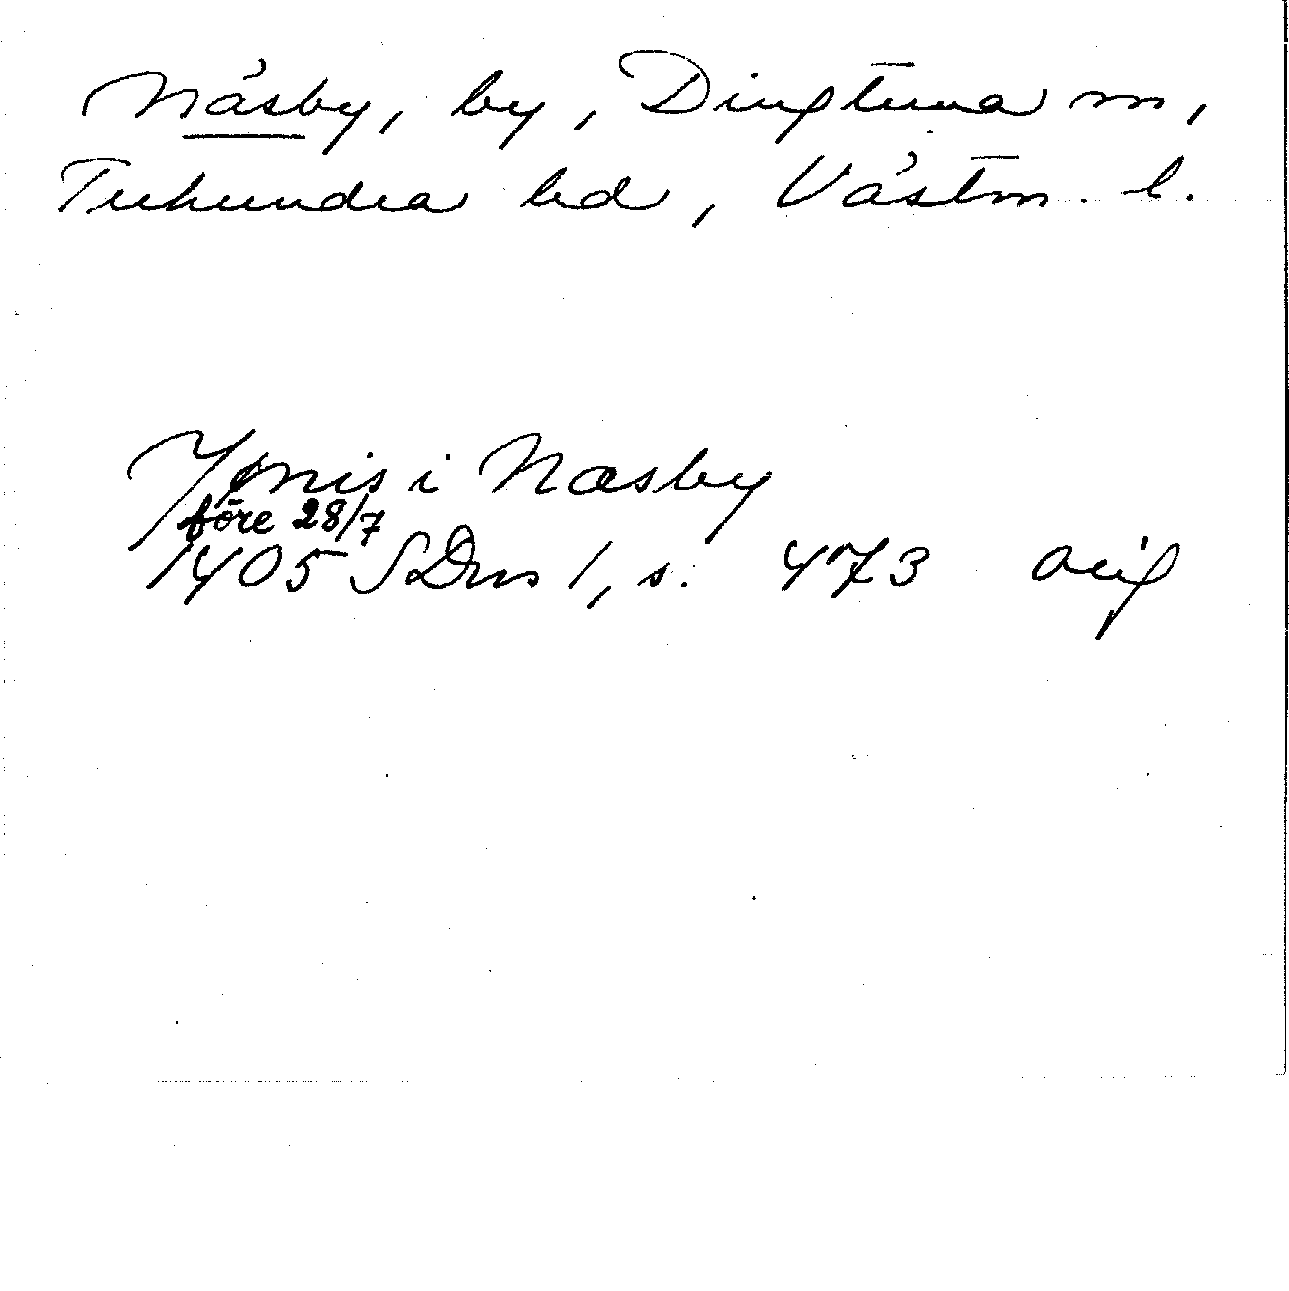 Näsby, by, Dingtuna sn,
Tuhundra hd, Västm. l.
Jønis i Næsby
före 28/7
1405 SDns 1, s. 473 orig